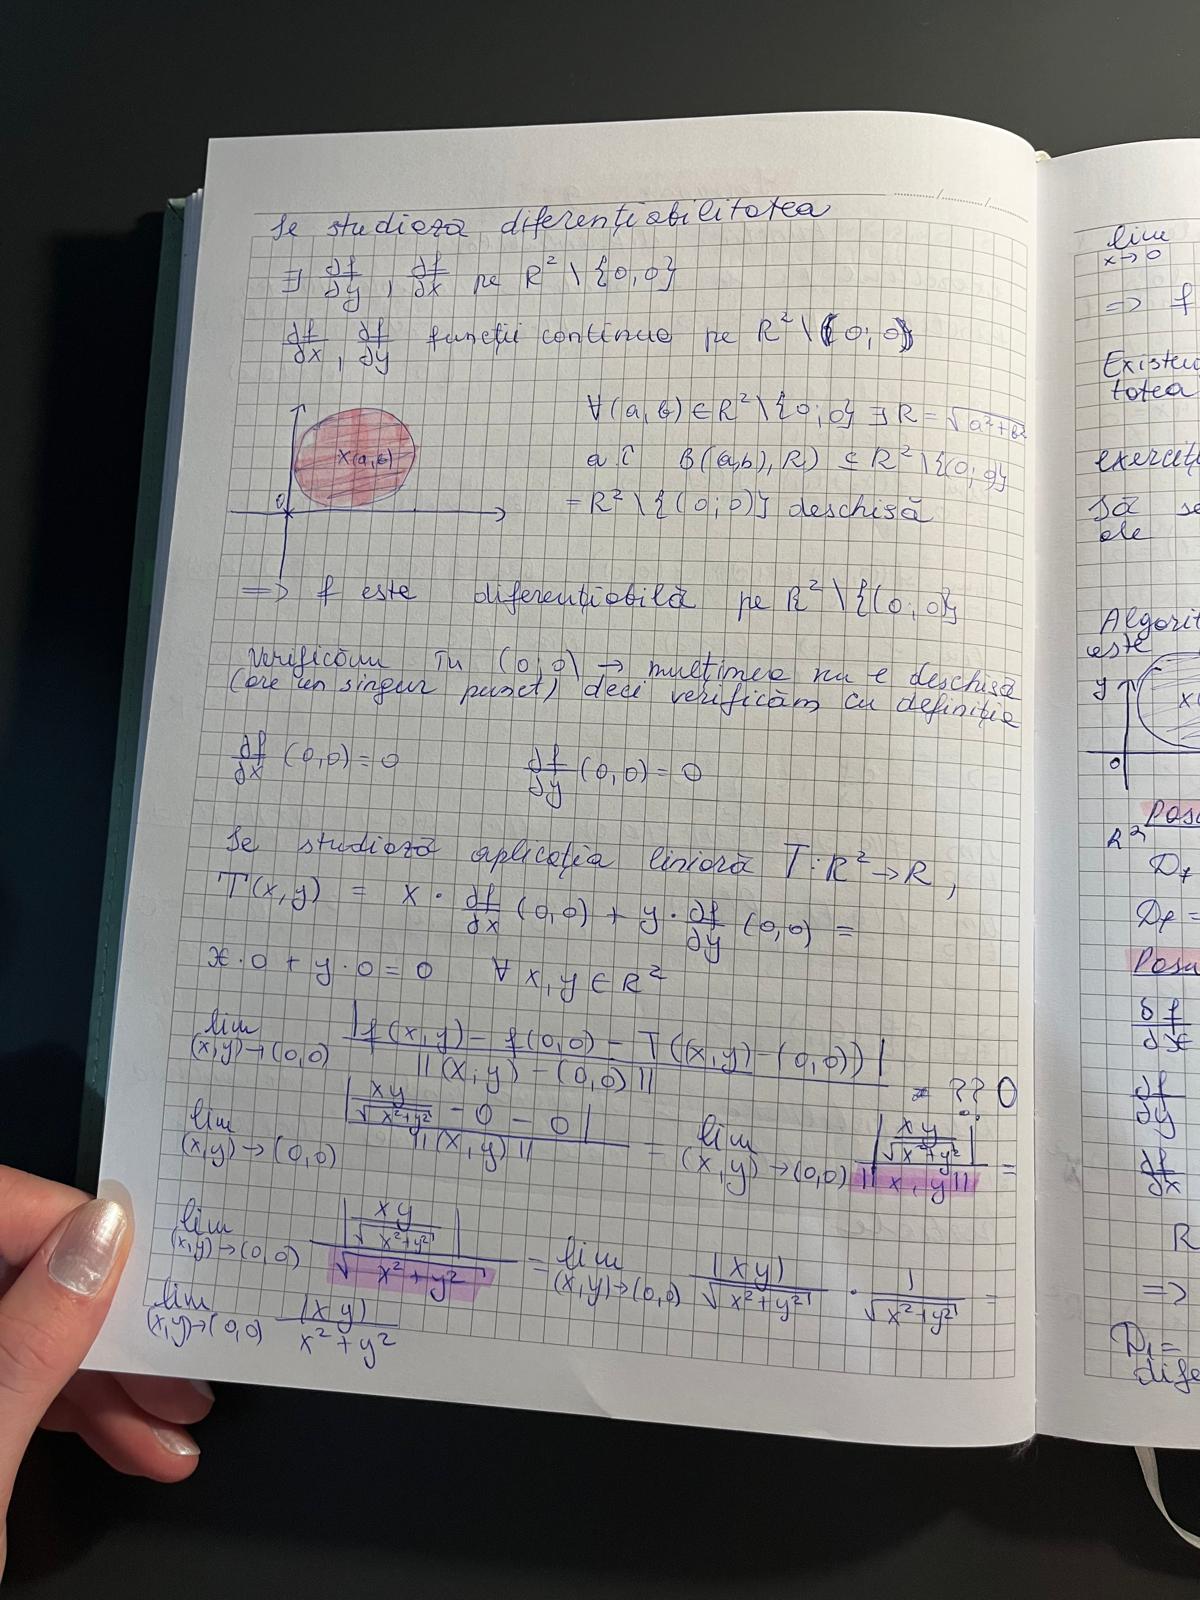 Se studiază diferențiabilitatea
∃ ∂f/∂y, ∂f/∂x pe R² \ {0,0}
∂f/∂x, ∂f/∂y funcții continue pe R² \ {(0;0)}
∀(a,b) ∈ R² \ {0;0} ∃ R = √(a²+b²)
a.î B(a,b), R) ⊆ R² \ {(0;0)}
= R² \ {(0;0)} deschisă
x(a,b)
0
=> f este diferențiabilă pe R² \ {(0;0)}
Verificăm în (0;0) → mulțimea nu e deschisă
(are un singur punct) deci verificăm cu definiție
∂f/∂x (0,0) = 0 ∂f/∂y (0,0) = 0
Se studiază aplicația liniară T: R² → R,
T(x,y) = x · ∂f/∂x (0,0) + y · ∂f/∂y (0,0) =
x·0 + y·0 = 0 ∀ x,y ∈ R²
lim (x,y)→(0,0) |f(x,y) − f(0,0) − T((x,y)−(0,0))| / ||(x,y) − (0,0)|| = ?? 0
lim (x,y)→(0,0) |xy/√(x²+y²) − 0 − 0| / ||(x,y)|| = lim (x,y)→(0,0) |xy/√(x²+y²)| / ||x,y|| =
lim (x,y)→(0,0) |xy/√(x²+y²)| / √(x²+y²) = lim (x,y)→(0,0) |xy|/√(x²+y²) · 1/√(x²+y²) =
lim (x,y)→(0,0) |xy| / x²+y²
lim x→0
=> f
exerciți
Să se
ale
este
y
0
R²
∂f/∂y
∂f/∂x
R
=>